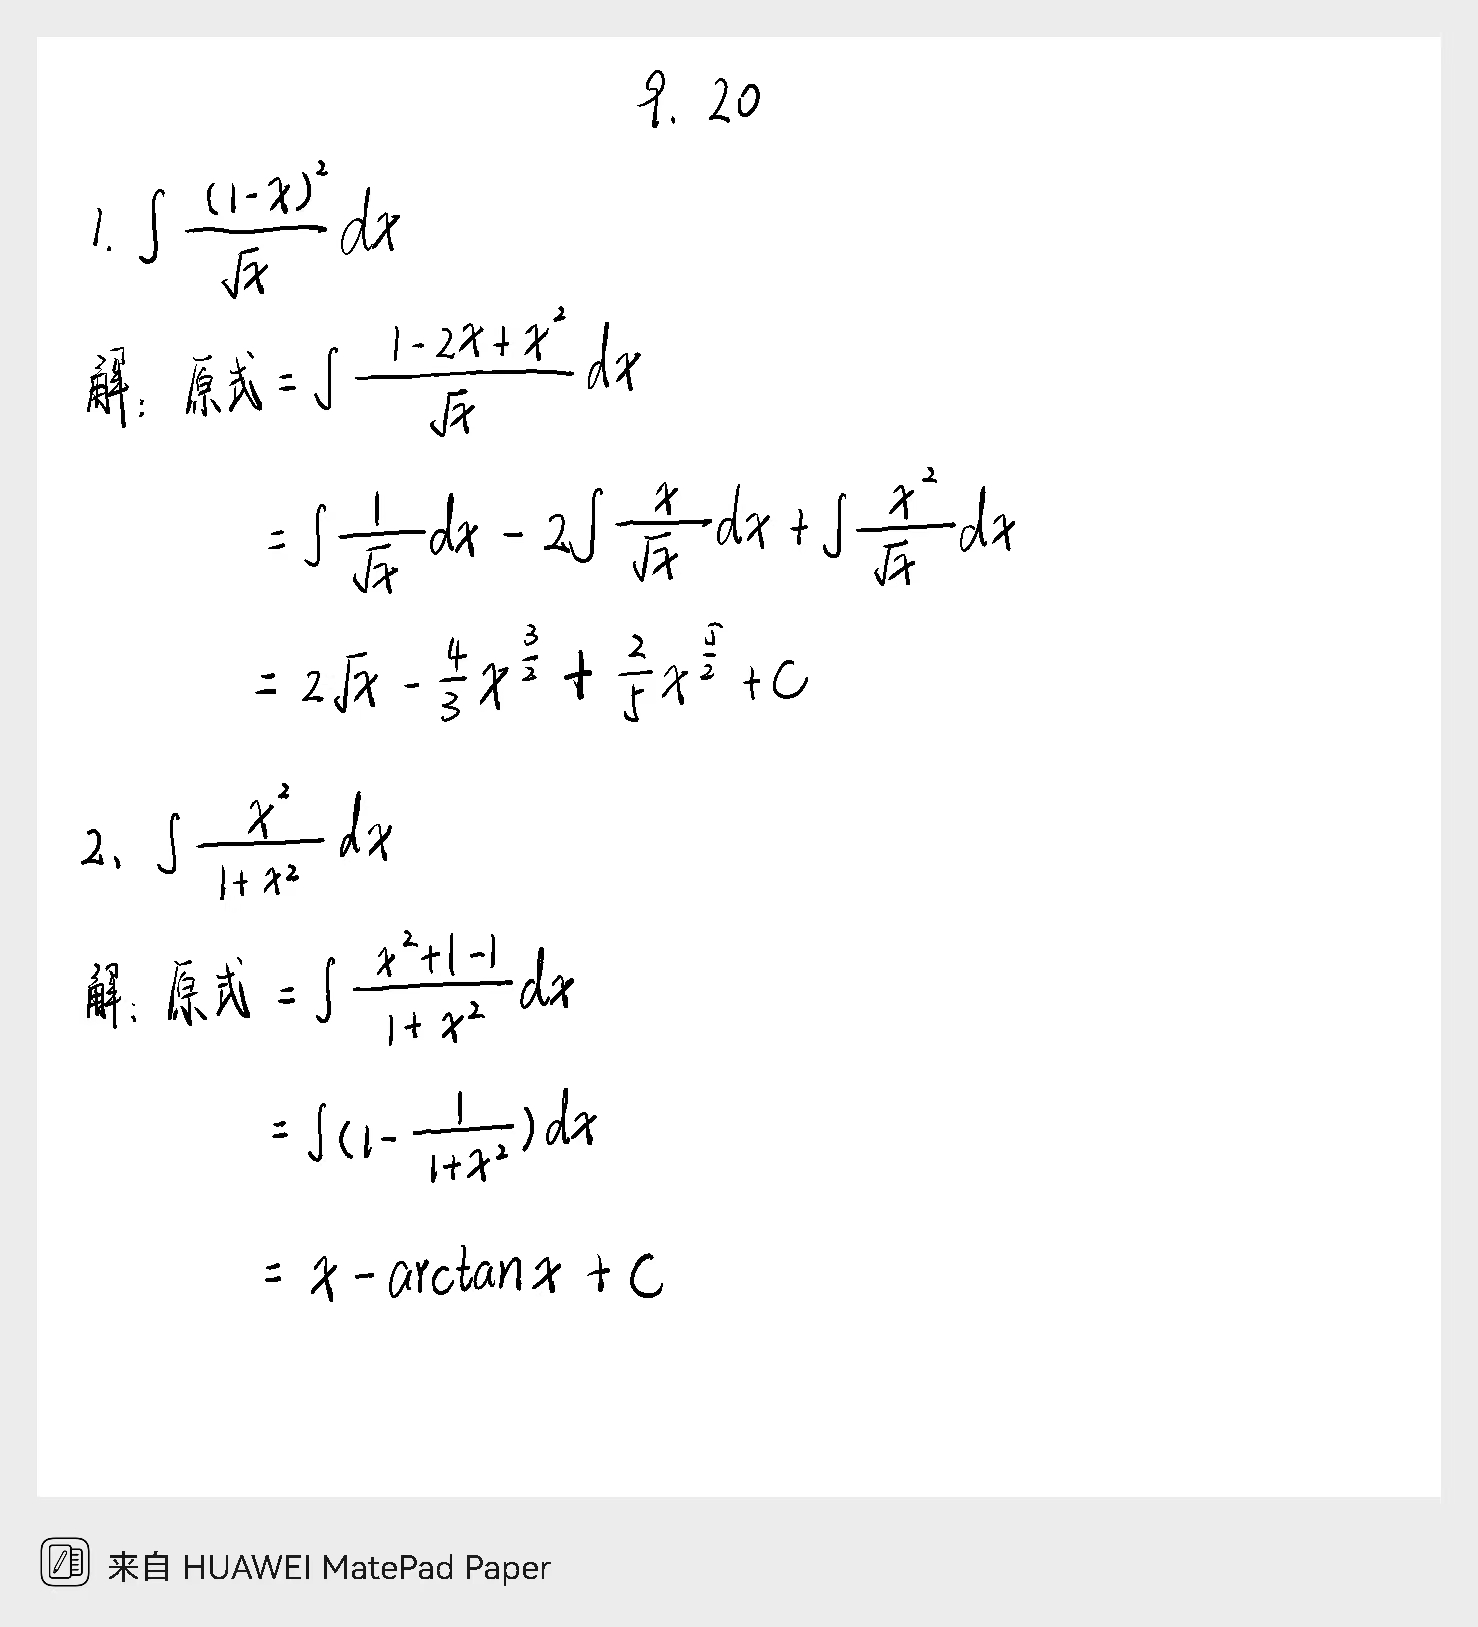 9. 20
1. ∫ (1-x)² / √x dx
解: 原式 = ∫ (1-2x+x²) / √x dx
= ∫ 1/√x dx - 2∫ x/√x dx + ∫ x²/√x dx
= 2√x - 4/3 x^(3/2) + 2/5 x^(5/2) + C
2、∫ x² / (1+x²) dx
解: 原式 = ∫ (x²+1-1) / (1+x²) dx
= ∫ (1 - 1/(1+x²)) dx
= x - arctanx + C
来自 HUAWEI MatePad Paper